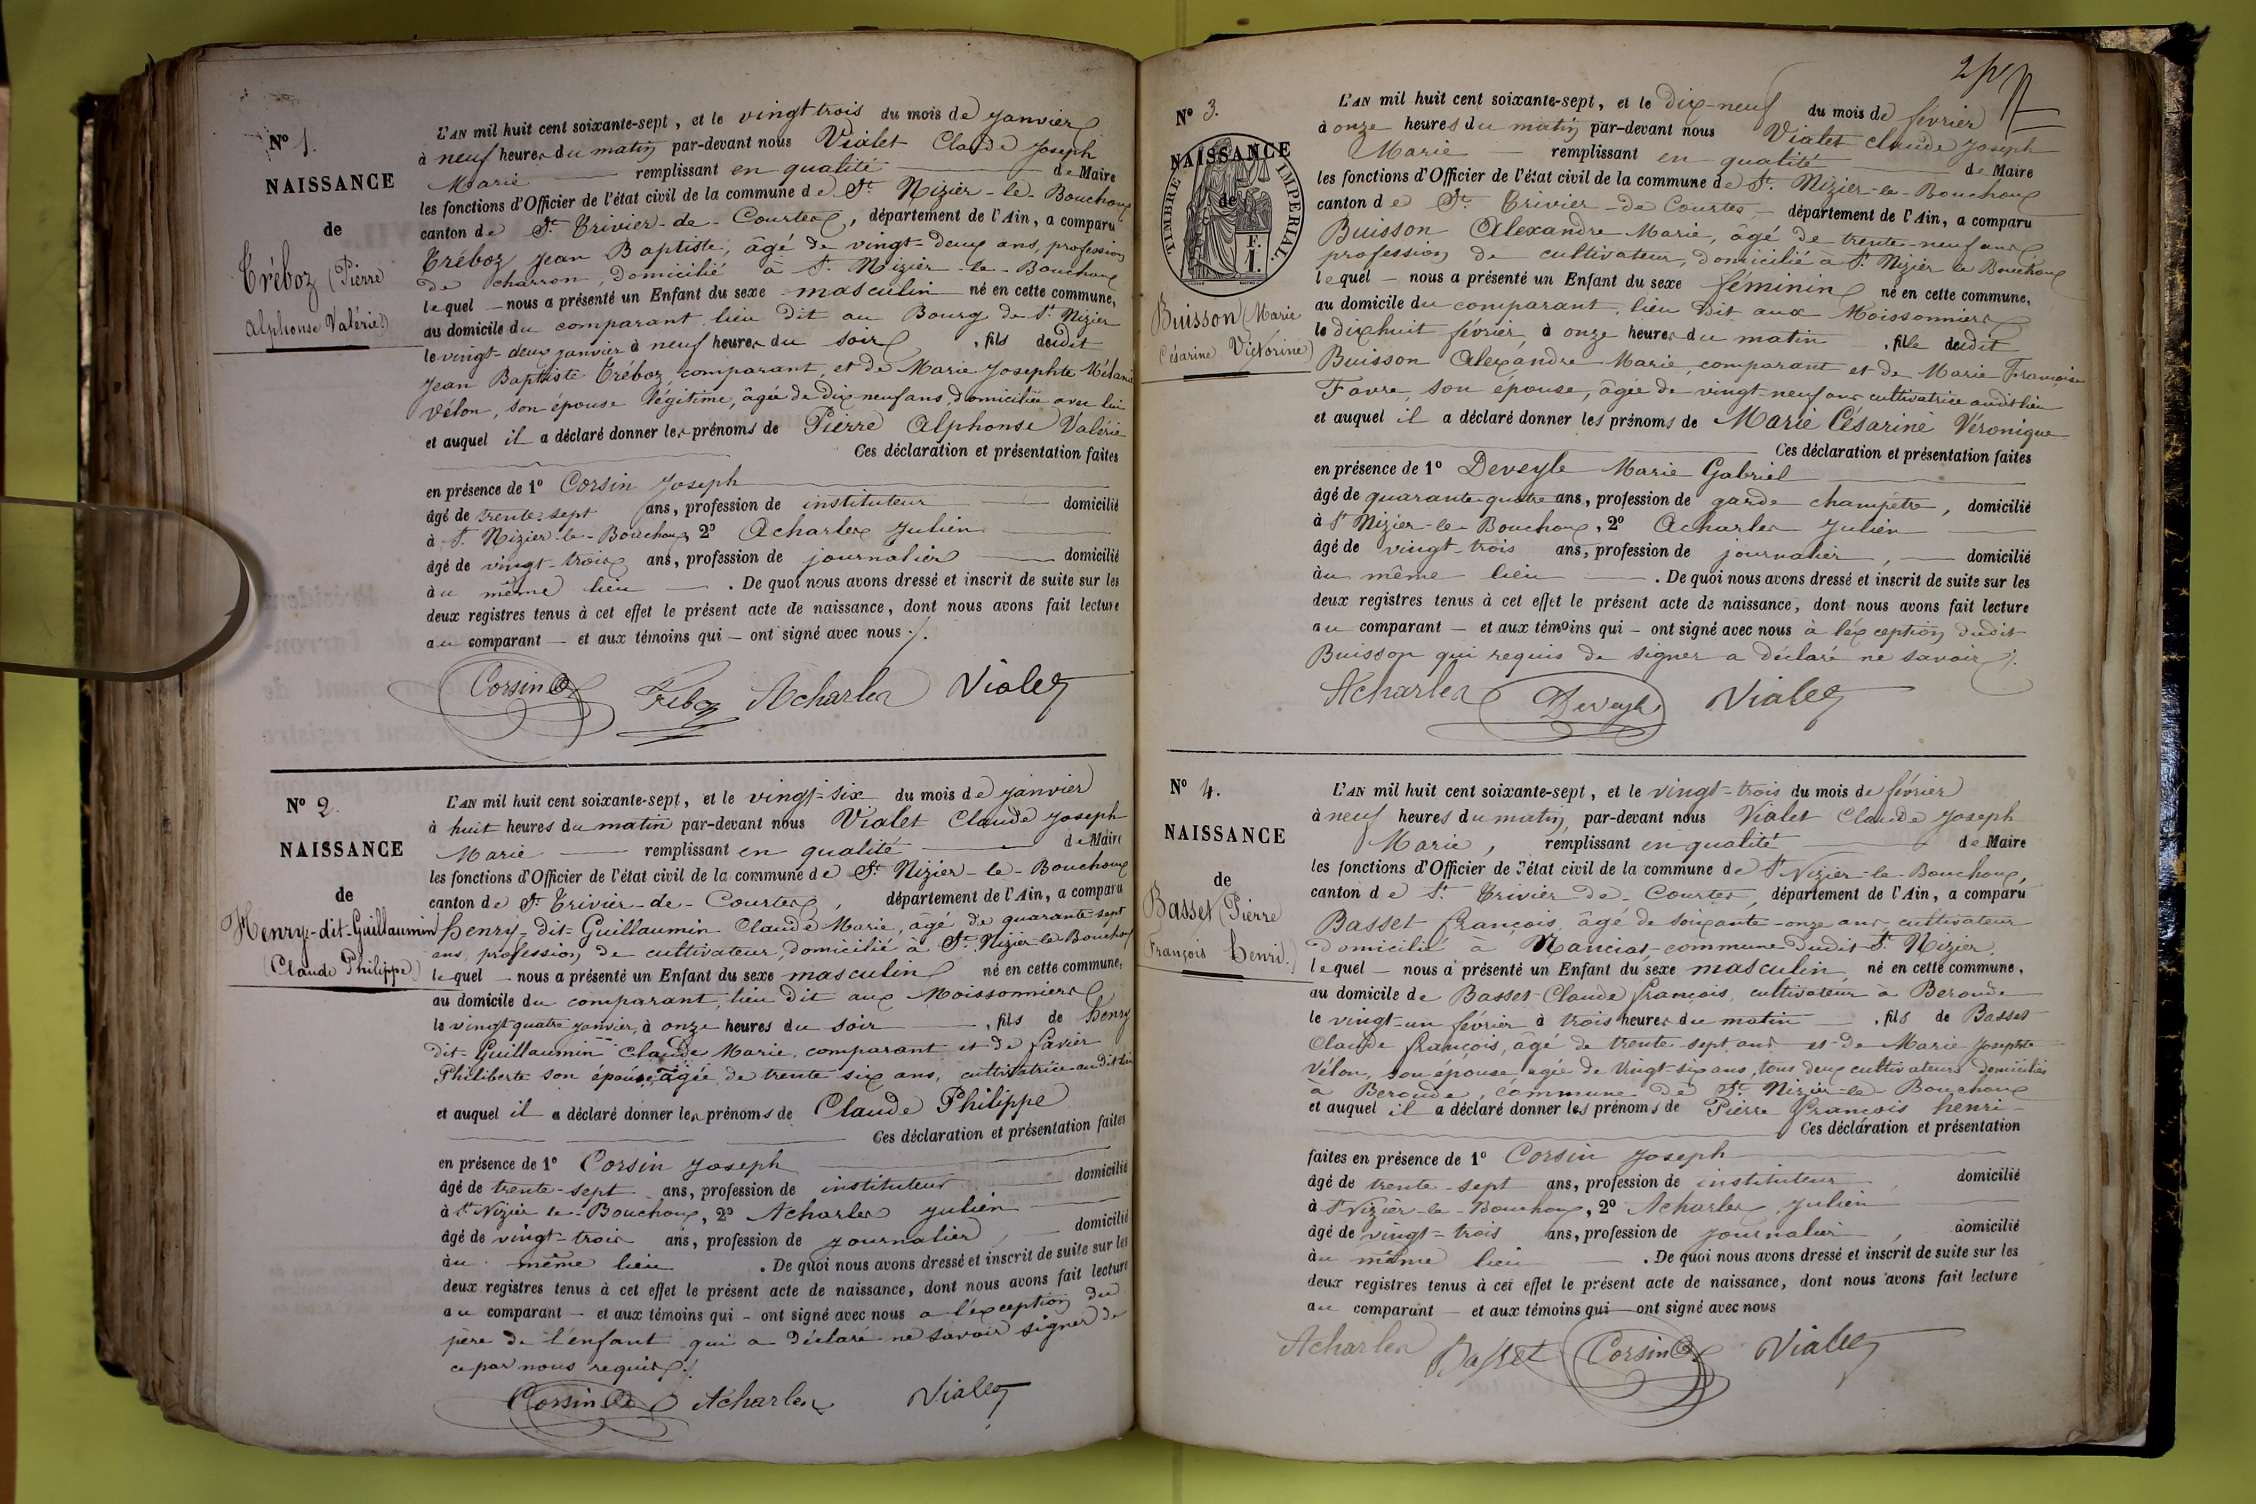 Nº 1.
NAISSANCE
de
Tréboz (Pierre
Alphonse Valérie)
L'AN mil huit cent soixante-sept, et le vingt trois du mois de janvier
à neuf heures du matin par-devant nous Vialet Claude Joseph
Marie remplissant en qualité de Maire
les fonctions d'Officier de l'état civil de la commune de St. Nizier-le-Bouchoux
canton de St. Trivier-de-Courtes, département de l'Ain, a comparu
Tréboz Jean Baptiste, âgé de vingt-deux ans, profession
de charron, domicilié à St. Nizier-le-Bouchoux
lequel nous a présenté un Enfant du sexe masculin né en cette commune,
au domicile du comparant, lieu dit au Bourg de St. Nizier
le vingt-deux janvier à neuf heures du soir, fils dudit
Jean Baptiste Tréboz, comparant, et de Marie Josephte Mélanie
Vélon, son épouse légitime, âgée de dix neuf ans, domiciliée avec lui
et auquel il a déclaré donner les prénoms de Pierre Alphonse Valérie
Ces déclaration et présentation faites
en présence de 1º Corsin Joseph
âgé de trente-sept ans, profession de instituteur domicilié
à St. Nizier-le-Bouchoux, 2º Acharles Julien
âgé de vingt-trois ans, profession de journalier domicilié
au même lieu. De quoi nous avons dressé et inscrit de suite sur les
deux registres tenus à cet effet le présent acte de naissance, dont nous avons fait lecture
au comparant et aux témoins qui ont signé avec nous
Corsin Acharles Vialet
Nº 2.
NAISSANCE
de
Henry-dit-Guillaumin
(Claude Philippe)
L'AN mil huit cent soixante-sept, et le vingt-six du mois de janvier
à huit heures du matin par-devant nous Vialet Claude Joseph
Marie remplissant en qualité de Maire
les fonctions d'Officier de l'état civil de la commune de St. Nizier-le-Bouchoux
canton de St. Trivier-de-Courtes, département de l'Ain, a comparu
Henry-dit-Guillaumin Claude Marie, âgé de quarante-sept
ans, profession de cultivateur, domicilié à St. Nizier-le-Bouchoux
lequel nous a présenté un Enfant du sexe masculin né en cette commune,
au domicile du comparant, lieu dit aux Moissonniers
le vingt quatre janvier, à onze heures du soir, fils de Henry
dit-Guillaumin Claude Marie, comparant et de Favier
Philiberte son épouse, âgée de trente six ans, cultivatrice audit lieu
et auquel il a déclaré donner les prénoms de Claude Philippe
Ces déclaration et présentation faites
en présence de 1º Corsin Joseph
âgé de trente-sept ans, profession de instituteur domicilié
à St. Nizier-le-Bouchoux, 2º Acharles Julien
âgé de vingt-trois ans, profession de journalier, domicilié
au même lieu. De quoi nous avons dressé et inscrit de suite sur les
deux registres tenus à cet effet le présent acte de naissance, dont nous avons fait lecture
au comparant et aux témoins qui ont signé avec nous à l'exception du
père de l'enfant qui a déclaré ne savoir signer de
ce par nous requis
Corsin Acharles Vialet
Nº 3.
NAISSANCE
de
TIMBRE IMPÉRIAL.
Buisson (Marie
Césarine Victorine)
L'AN mil huit cent soixante-sept, et le dix-neuf du mois de février
à onze heures du matin par-devant nous Vialet Claude Joseph
Marie remplissant en qualité de Maire
les fonctions d'Officier de l'état civil de la commune de St. Nizier-le-Bouchoux
canton de St. Trivier-de-Courtes, département de l'Ain, a comparu
Buisson Alexandre Marie, âgé de trente-neuf ans
profession de cultivateur, domicilié à St. Nizier le Bouchoux
lequel nous a présenté un Enfant du sexe féminin né en cette commune,
au domicile du comparant, lieu dit aux Moissonniers
le dix huit février, à onze heures du matin, fille dudit
Buisson Alexandre Marie, comparant et de Marie Françoise
Favre, son épouse, âgée de vingt-neuf ans cultivatrice audit lieu
et auquel il a déclaré donner les prénoms de Marie Césarine Véronique
Ces déclaration et présentation faites
en présence de 1º Deveyle Marie Gabriel
âgé de quarante quatre ans, profession de garde champêtre, domicilié
à St Nizier-le-Bouchoux, 2º Acharles Julien
âgé de vingt-trois ans, profession de journalier, domicilié
au même lieu. De quoi nous avons dressé et inscrit de suite sur les
deux registres tenus à cet effet le présent acte de naissance, dont nous avons fait lecture
au comparant et aux témoins qui ont signé avec nous à l'exception dudit
Buisson qui requis de signer a déclaré ne savoir
Acharles Deveyle Vialet
Nº 4.
NAISSANCE
de
Basset (Pierre
François Henri.)
L'AN mil huit cent soixante-sept, et le vingt-trois du mois de février
à neuf heures du matin, par-devant nous Vialet Claude Joseph
Marie, remplissant en qualité de Maire
les fonctions d'Officier de l'état civil de la commune de St Nizier-le-Bouchoux,
canton de St. Trivier-de-Courtes, département de l'Ain, a comparu
Basset François, âgé de soixante-onze ans, cultivateur
domicilié à Nanciat, commune dudit St. Nizier,
lequel nous a présenté un Enfant du sexe masculin, né en cette commune,
au domicile de Basset Claude François, cultivateur à Beroude
le vingt-un février à trois heures du matin, fils de Basset
Claude François, âgé de trente-sept ans et de Marie Josephte
Vélon, son épouse âgée de vingt-six ans, tous deux cultivateurs domiciliés
à Beroude, commune de St. Nizier-le-Bouchoux
et auquel il a déclaré donner les prénoms de Pierre François Henri
Ces déclaration et présentation
faites en présence de 1º Corsin Joseph
âgé de trente-sept ans, profession de instituteur, domicilié
à St Nizier-le-Bouchoux, 2º Acharles Julien
âgé de vingt-trois ans, profession de journalier, domicilié
au même lieu. De quoi nous avons dressé et inscrit de suite sur les
deux registres tenus à cet effet le présent acte de naissance, dont nous avons fait lecture
au comparant et aux témoins qui ont signé avec nous
Acharles Basset Corsin Vialet